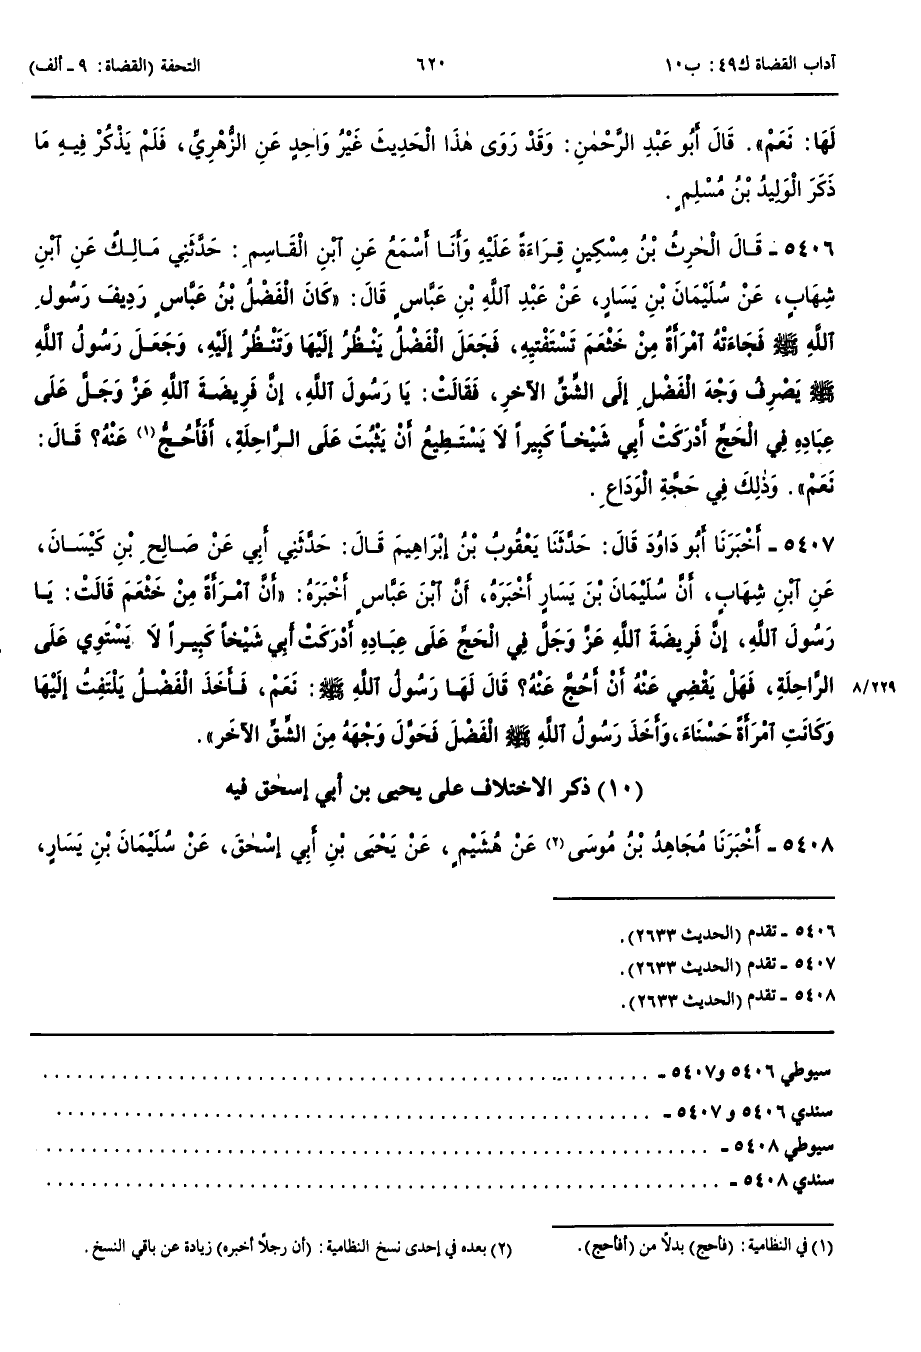 آداب القضاة ك٤٩: ب١٠ ٦٢٠ التحفة (القضاة: ٩ - ألف)
لَهَا: نَعَمْ». قَالَ أَبُو عَبْدِ الرَّحْمٰنِ: وَقَدْ رَوَى هٰذَا الْحَدِيثَ غَيْرُ وَاحِدٍ عَنِ الزُّهْرِيِّ، فَلَمْ يَذْكُرْ فِيهِ مَا
ذَكَرَ الْوَلِيدُ بْنُ مُسْلِمٍ.
٥٤٠٦ - قَالَ الْحٰرِثُ بْنُ مِسْكِينٍ قِرَاءَةً عَلَيْهِ وَأَنَا أَسْمَعُ عَنِ ٱبْنِ الْقَاسِمِ: حَدَّثَنِي مَالِكٌ عَنِ ٱبْنِ
شِهَابٍ، عَنْ سُلَيْمَانَ بْنِ يَسَارٍ، عَنْ عَبْدِ اللَّهِ بْنِ عَبَّاسٍ قَالَ: «كَانَ الْفَضْلُ بْنُ عَبَّاسٍ رَدِيفَ رَسُولِ
ٱللَّهِ ﷺ فَجَاءَتْهُ ٱمْرَأَةٌ مِنْ خَثْعَمَ تَسْتَفْتِيهِ، فَجَعَلَ الْفَضْلُ يَنْظُرُ إِلَيْهَا وَتَنْظُرُ إِلَيْهِ، وَجَعَلَ رَسُولُ اللَّهِ
ﷺ يَصْرِفُ وَجْهَ الْفَضْلِ إِلَى الشِّقِّ الآخَرِ، فَقَالَتْ: يَا رَسُولَ اللَّهِ، إِنَّ فَرِيضَةَ ٱللَّهِ عَزَّ وَجَلَّ عَلَى
عِبَادِهِ فِي الْحَجِّ أَدْرَكَتْ أَبِي شَيْخاً كَبِيراً لَا يَسْتَطِيعُ أَنْ يَثْبُتَ عَلَى الرَّاحِلَةِ، أَفَأَحُجُّ(١) عَنْهُ؟ قَالَ:
نَعَمْ». وَذٰلِكَ فِي حَجَّةِ الْوَدَاعِ.
٥٤٠٧ - أَخْبَرَنَا أَبُو دَاوُدَ قَالَ: حَدَّثَنَا يَعْقُوبُ بْنُ إِبْرَاهِيمَ قَالَ: حَدَّثَنِي أَبِي عَنْ صَالِحِ بْنِ كَيْسَانَ،
عَنِ ٱبْنِ شِهَابٍ، أَنَّ سُلَيْمَانَ بْنَ يَسَارٍ أَخْبَرَهُ، أَنَّ ٱبْنَ عَبَّاسٍ أَخْبَرَهُ: «أَنَّ ٱمْرَأَةً مِنْ خَثْعَمَ قَالَتْ: يَا
رَسُولَ ٱللَّهِ، إِنَّ فَرِيضَةَ اللَّهِ عَزَّ وَجَلَّ فِي الْحَجِّ عَلَى عِبَادِهِ أَدْرَكَتْ أَبِي شَيْخاً كَبِيراً لَا يَسْتَوِي عَلَى
الرَّاحِلَةِ، فَهَلْ يَقْضِي عَنْهُ أَنْ أَحُجَّ عَنْهُ؟ قَالَ لَهَا رَسُولُ ٱللَّهِ ﷺ: نَعَمْ، فَأَخَذَ الْفَضْلُ يَلْتَفِتُ إِلَيْهَا ٨/٢٢٩
وَكَانَتِ ٱمْرَأَةً حَسْنَاءَ، وَأَخَذَ رَسُولُ ٱللَّهِ ﷺ الْفَضْلَ فَحَوَّلَ وَجْهَهُ مِنَ الشِّقِّ الآخَرِ».
(١٠) ذكر الاختلاف على يحيى بن أبي إسحٰق فيه
٥٤٠٨ - أَخْبَرَنَا مُجَاهِدُ بْنُ مُوسَى(٢) عَنْ هُشَيْمٍ، عَنْ يَحْيَى بْنِ أَبِي إِسْحٰقَ، عَنْ سُلَيْمَانَ بْنِ يَسَارٍ،
٥٤٠٦ - تقدم (الحديث ٢٦٣٣).
٥٤٠٧ - تقدم (الحديث ٢٦٣٣).
٥٤٠٨ - تقدم (الحديث ٢٦٣٣).
سيوطي ٥٤٠٦ و٥٤٠٧ - ..........
سندي ٥٤٠٦ و ٥٤٠٧ - ..........
سيوطي ٥٤٠٨ - ..........
سندي ٥٤٠٨ - ..........
(١) في النظامية: (فأحج) بدلاً من (أفأحج). (٢) بعده في إحدى نسخ النظامية: (أن رجلاً أخبره) زيادة عن باقي النسخ.